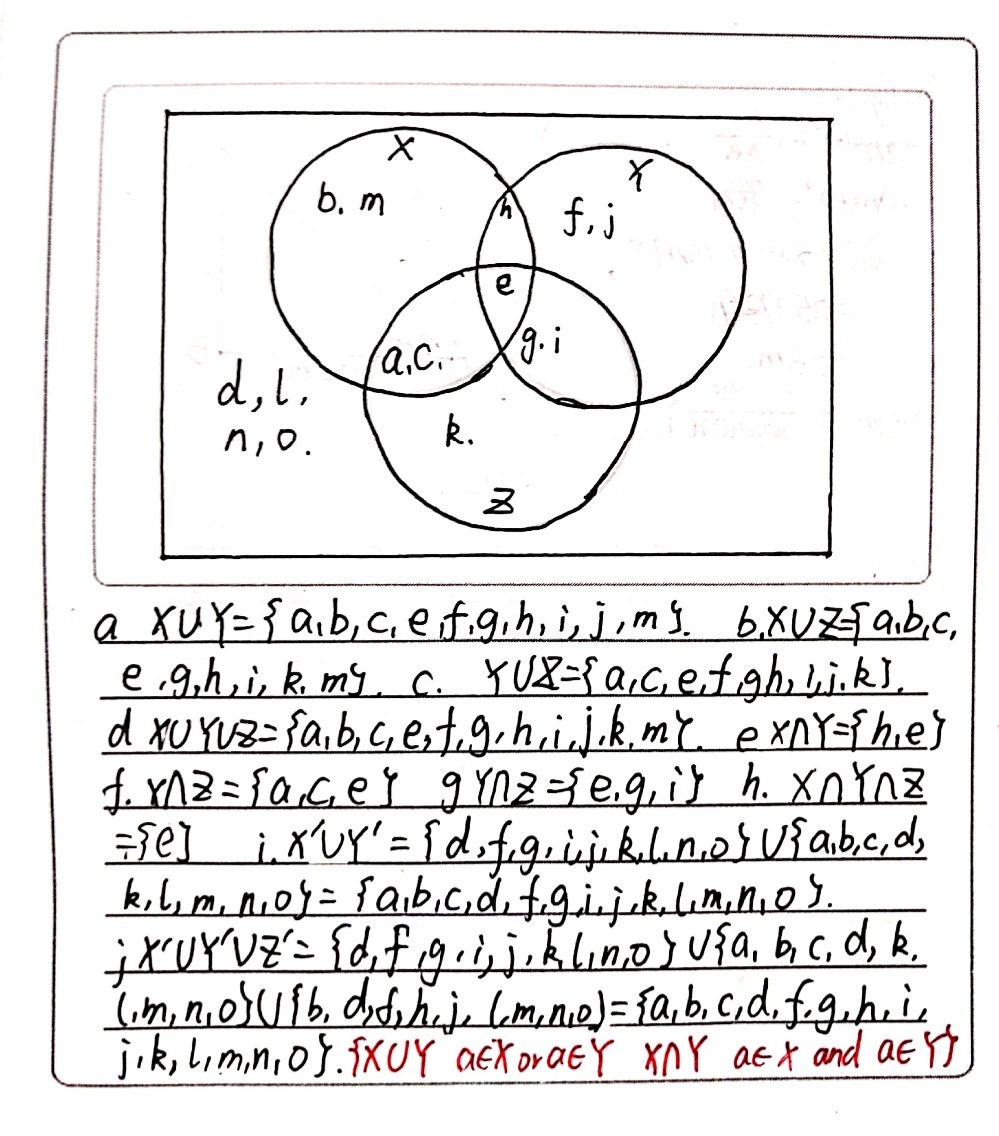 X
Y
b, m
h
f, j
e
a, c.
g, i
d, l,
n, o.
k.
Z
a X∪Y={a,b,c,e,f,g,h,i,j,m}. b,X∪Z={a,b,c,
e,g,h,i,k,m}. c. Y∪Z={a,c,e,f,gh,i,j,k}.
d X∪Y∪Z={a,b,c,e,f,g,h,i,j,k,m}. e X∩Y={h,e}
f. X∩Z={a,c,e} g Y∩Z={e,g,i} h. X∩Y∩Z
={e} i. X'∪Y'={d,f,g,i,j,k,l,n,o}∪{a,b,c,d,
k,l,m,n,o}={a,b,c,d,f,g,i,j,k,l,m,n,o}.
j X'∪Y'∪Z'={d,f,g,i,j,k,l,n,o}∪{a,b,c,d,k,
l,m,n,o}∪{b,d,f,h,j,l,m,n,o}={a,b,c,d,f,g,h,i,
j,k,l,m,n,o}. {X∪Y a∈X or a∈Y X∩Y a∈X and a∈Y}